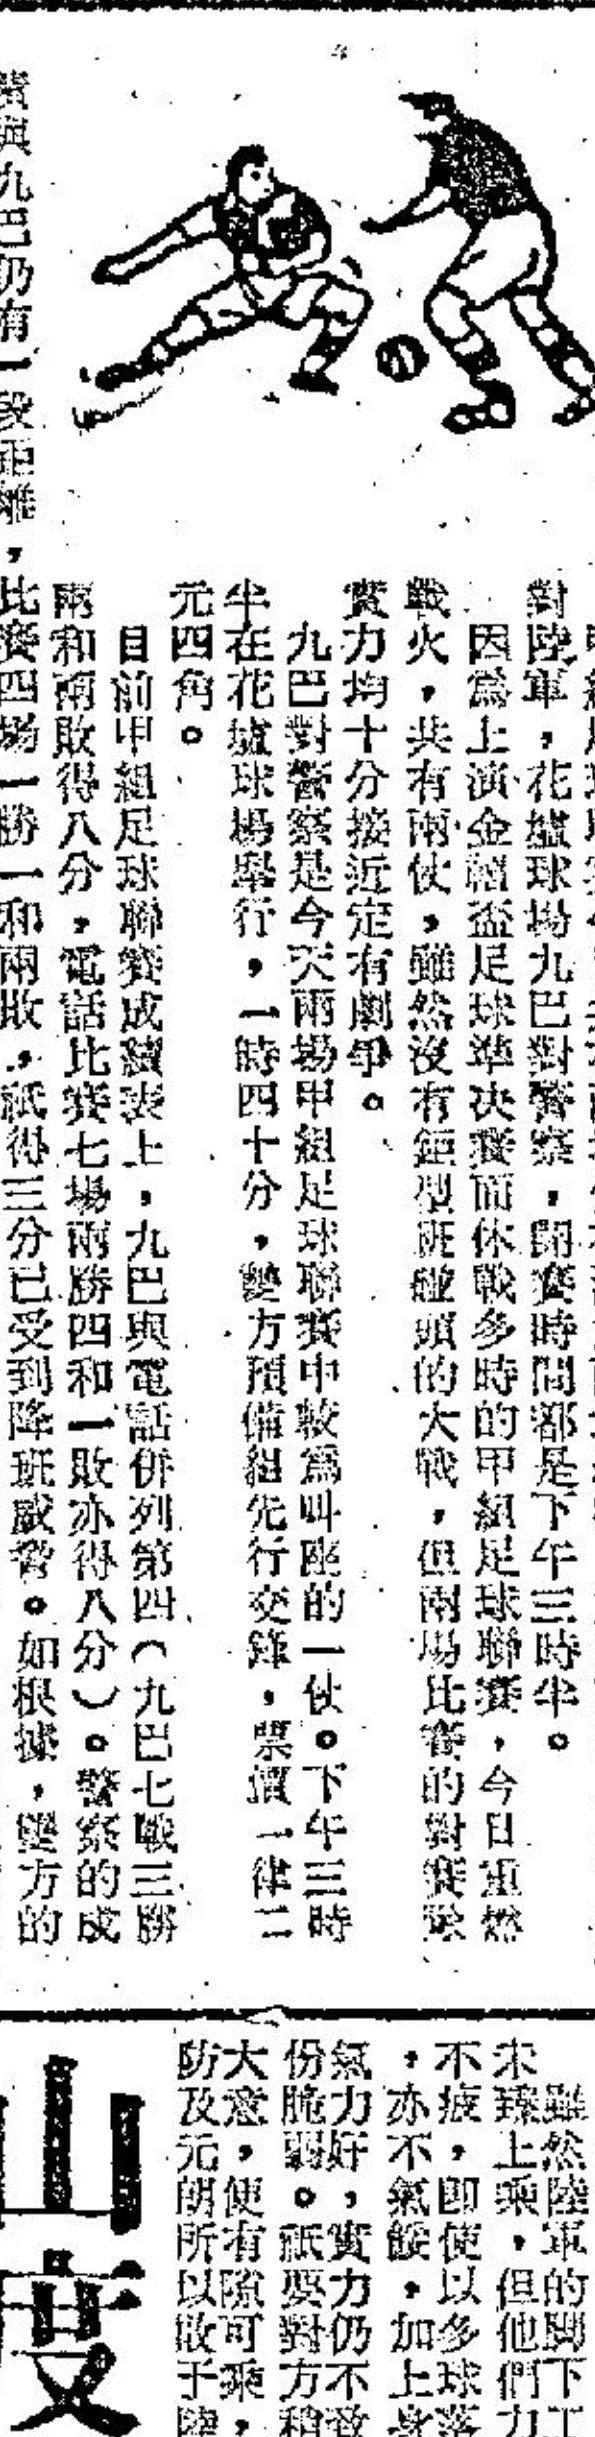 對陸軍，花墟球場九巴對警察，開賽時間都是下午三時半。
因為上演金禧盃足球準決賽而休戰多時的甲組足球聯賽，今日重燃
戰火，共有兩仗，雖然沒有鉅型班碰頭的大戰，但兩場比賽的對賽隊
實力均十分接近定有劇爭。
九巴對警察是今天兩場甲組足球聯賽中較為叫座的一仗。下午三時
半在花墟球場舉行，一時四十分，雙方預備組先行交鋒，票價一律二
元四角。
目前甲組足球聯賽成績表上，九巴與電話併列第四（九巴七戰三勝
兩和兩敗得八分，電話比賽七場兩勝四和一敗亦得八分）。警察的成
績與九巴仍有一段距離，比賽四場一勝一和兩敗，祇得三分已受到降班威脅。如根據，雙方的
雖然陸軍的腳下工
未臻上乘，但他們力
不疲，即使以多球落
，亦不氣餒，加上身
氣力好，實力仍不致
份脆弱。祇要對方稍
大意，便有隙可乘，
防及元朗所以敗于陸
山度